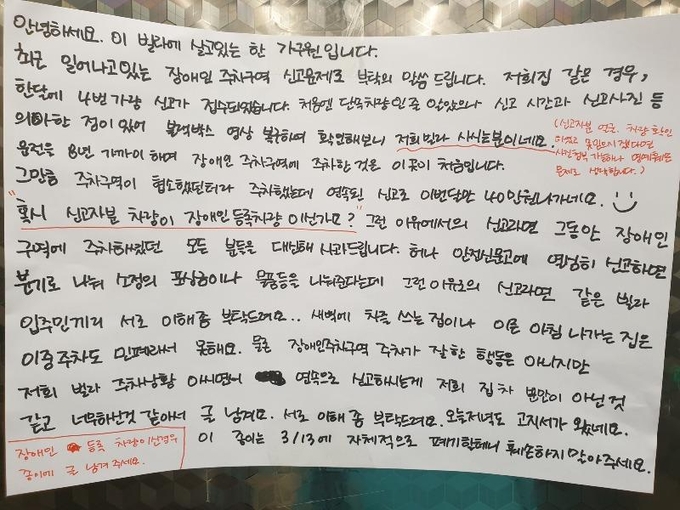 안녕하세요. 이 빌라에 살고있는 한 가구원입니다.
최근 일어나고있는 장애인 주차구역 신고문제로 부탁의 말씀 드립니다. 저희집 같은 경우,
한달에 4번가량 신고가 접수되었습니다. 처음엔 단속차량인줄 알았으나 신고 시간과 신고사진 등
의아한 점이 있어 블랙박스 영상 복구하여 확인해보니 저희 빌라 사시는분이네요.
(신고자분 얼굴, 차량 확인
하였고 못믿으시겠다면
사진첨부 가능하나 명예훼손
문제로 생략합니다.)
운전을 8년 가까이 하며 장애인 주차구역에 주차한 것은 이곳이 처음입니다.
그만큼 주차구역이 협소했던터라 주차했는데 연속된 신고로 이번달만 40만원나가네요. :)
"혹시 신고자분 차량이 장애인 등록차량 이신가요?" 그런 이유에서의 신고라면 그동안 장애인
구역에 주차해왔던 모든 분들을 대신해 사과드립니다. 허나 안전신문고에 열심히 신고하면
분기로 나눠 소정의 포상금이나 물품등을 나눠준다는데 그런 이유로의 신고라면 같은 빌라
입주민끼리 서로 이해좀 부탁드려요.. 새벽에 차를 쓰는 집이나 이른 아침 나가는 집은
이중주차도 민폐라서 못해요. 물론 장애인주차구역 주차가 잘한 행동은 아니지만
저희 빌라 주차상황 아시면서 연속으로 신고하시는게 저희 집 차 뿐만이 아닌것
같고 너무하신것 같아서 글 남겨요. 서로 이해 좀 부탁드려요. 오늘저녁도 고지서가 왔네요.
이 종이는 3/13에 자체적으로 폐기할테니 훼손하지 말아주세요.
장애인 등록 차량이신경우
종이에 글 남겨 주세요.